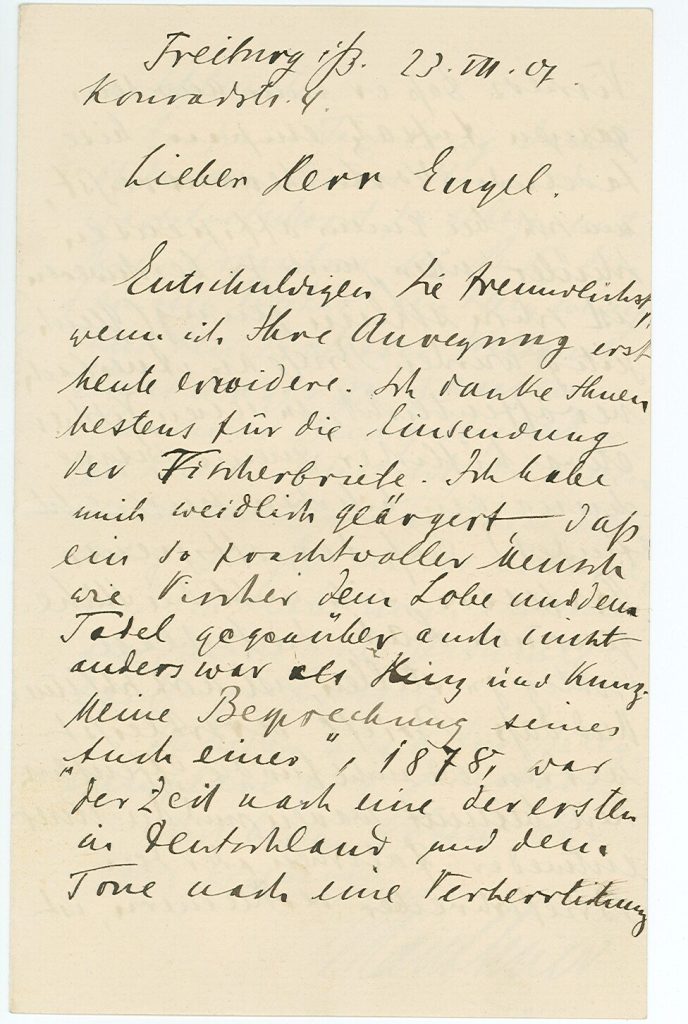 Freiburg i/B. 23. VII. 07.
Konradstr. 4.
Lieber Herr Engel.
Entschuldigen Sie freundlichst,
wenn ich Ihre Anregung erst
heute erwidere. Ich danke Ihnen
bestens für die Einsendung
der Vischerbriefe. Ich habe
mich weidlich geärgert, daß
ein so prachtvoller Mensch
wie Vischer dem Lobe und dem
Tadel gegenüber auch nicht
anders war als Hinz und Kunz.
Meine Besprechung seines
„Auch einer“, 1878, war
der Zeit nach eine der ersten
in Deutschland und dem
Tone nach eine Verherrlichung